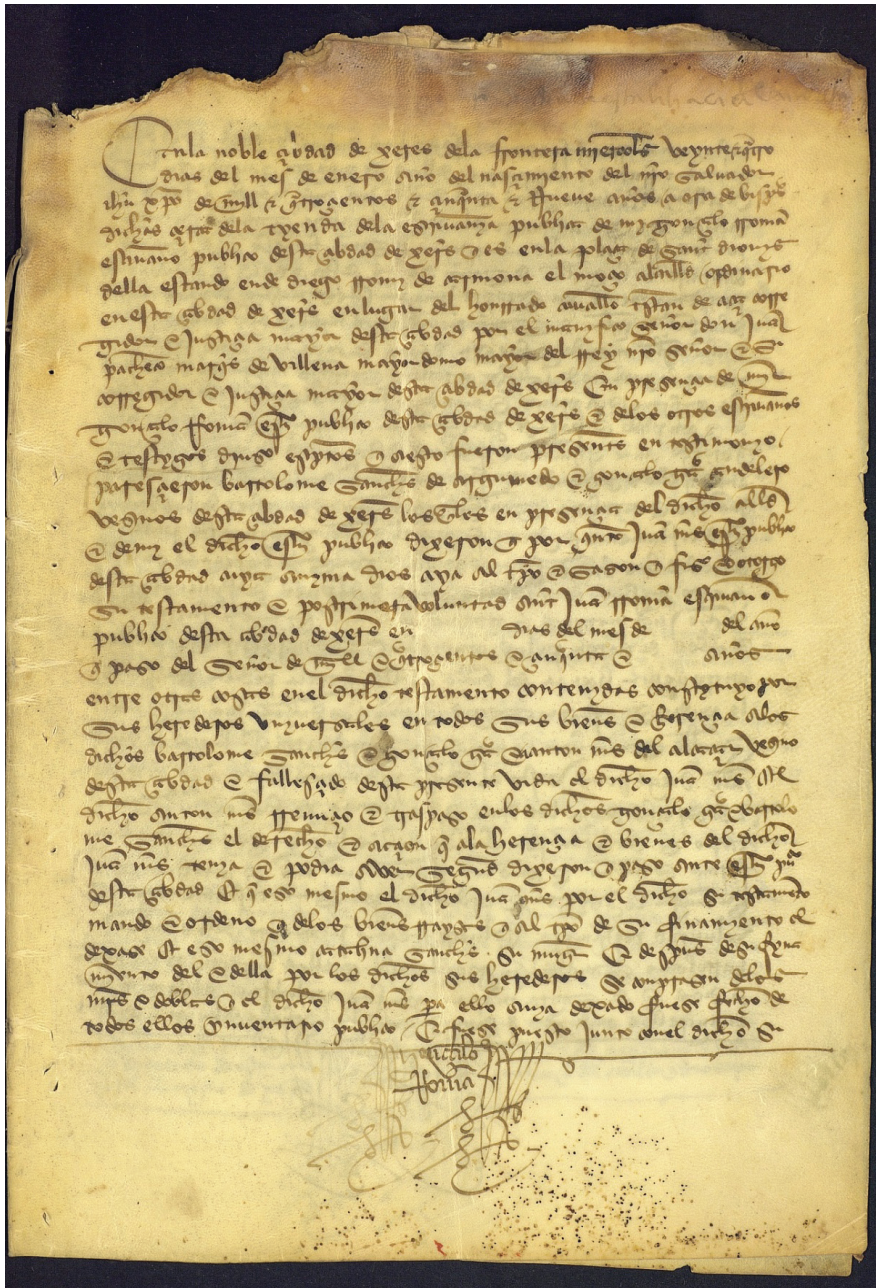 En la noble çibdad de xeres dela frontera miercoles veynte e quatro
dias del mes de enero año del nasçimiento del nro saluador
ihu xpo de mill e quatroçientos e çinquenta e nueue años a ora de bisperas
dichas çerca dela tyenda dela escriuania publica de my gonçalo rroman
escriuano publico desta çibdad de xeres que es enla plaça de sant dionys
della estando ende diego de carmona el moço alcallde ordinario
en esta çibdad de xeres en lugar del honrrado cauallero corre
gidor e justiçia mayor desta çibdad por el magnifico señor don juan
pacheco marques de villena mayordomo mayor del rrey nro señor e su
corregidor e justiçia mayor desta çibdad de xeres en presençia de my
gonçalo rroman escriuano publico desta çibdad de xeres e delos otros escriuanos
e testigos de yuso escriptos que a esto fueron presentes en testimonyo
paresçieron bartolome sanches de argumedo e gonçalo garcia candelero
vezinos desta çibdad de xeres los quales en presençia del dicho allde
e de my el dicho escriuano publico dixeron que por quanto juan mrs escriuano publico
desta çibdad cuya anyma dios aya al tpo e sazon que fizo e otorgo
su testamento e postrimera voluntad ante juan rroman escriuano
publico desta çibdad de xeres en dias del mes de del año
que paso del señor de mill e quatroçientos e çinquenta e años
entre otras cosas enel dicho testamento contenydas constytuyo por
sus herederos vnyuersales en todos sus bienes e herençia alos
dichos bartolome sanches e gonçalo garcia e anton mrs del alcaçar vezino
desta çibdad e fallesçido desta presente vida el dicho juan mrs el
dicho anton mrs rrenunçio e traspaso enlos dichos gonçalo garcia e bartolo
me sanches el derecho e acçion que ala herençia e bienes del dicho
juan mrs tenya e podia aver segund dixeron que paso ante escriuano puco
desta çibdad et que eso mesmo el dicho juan mrs por el dicho su testamento
mando e ordeno que delos bienes rrayzes que al tpo de su finamyento el
dexase et eso mesmo catalina sanches su muger e despues de su fyna
myento del e della por los dichos sus herederos se conprasen delos
mrs e doblas que el dicho juan mrs para ello auya dexado fuese fecho de
todos ellos ynventario publico e fuese puesto junto conel dicho su
gonçalo
Roman